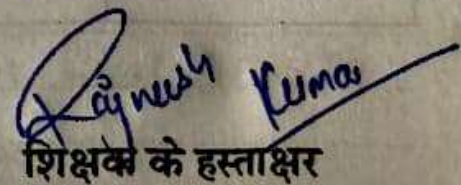 Rajneesh Kumar
शिक्षक के हस्ताक्षर